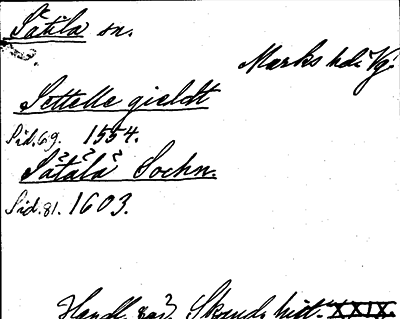 Sätila sn.
Marks hd. Vg.
Settelle gieldt
Sid. 69. 1554.
Såtålå Sochn.
Sid. 81. 1603.
Handl. rör. Skand. hist. XXIX.